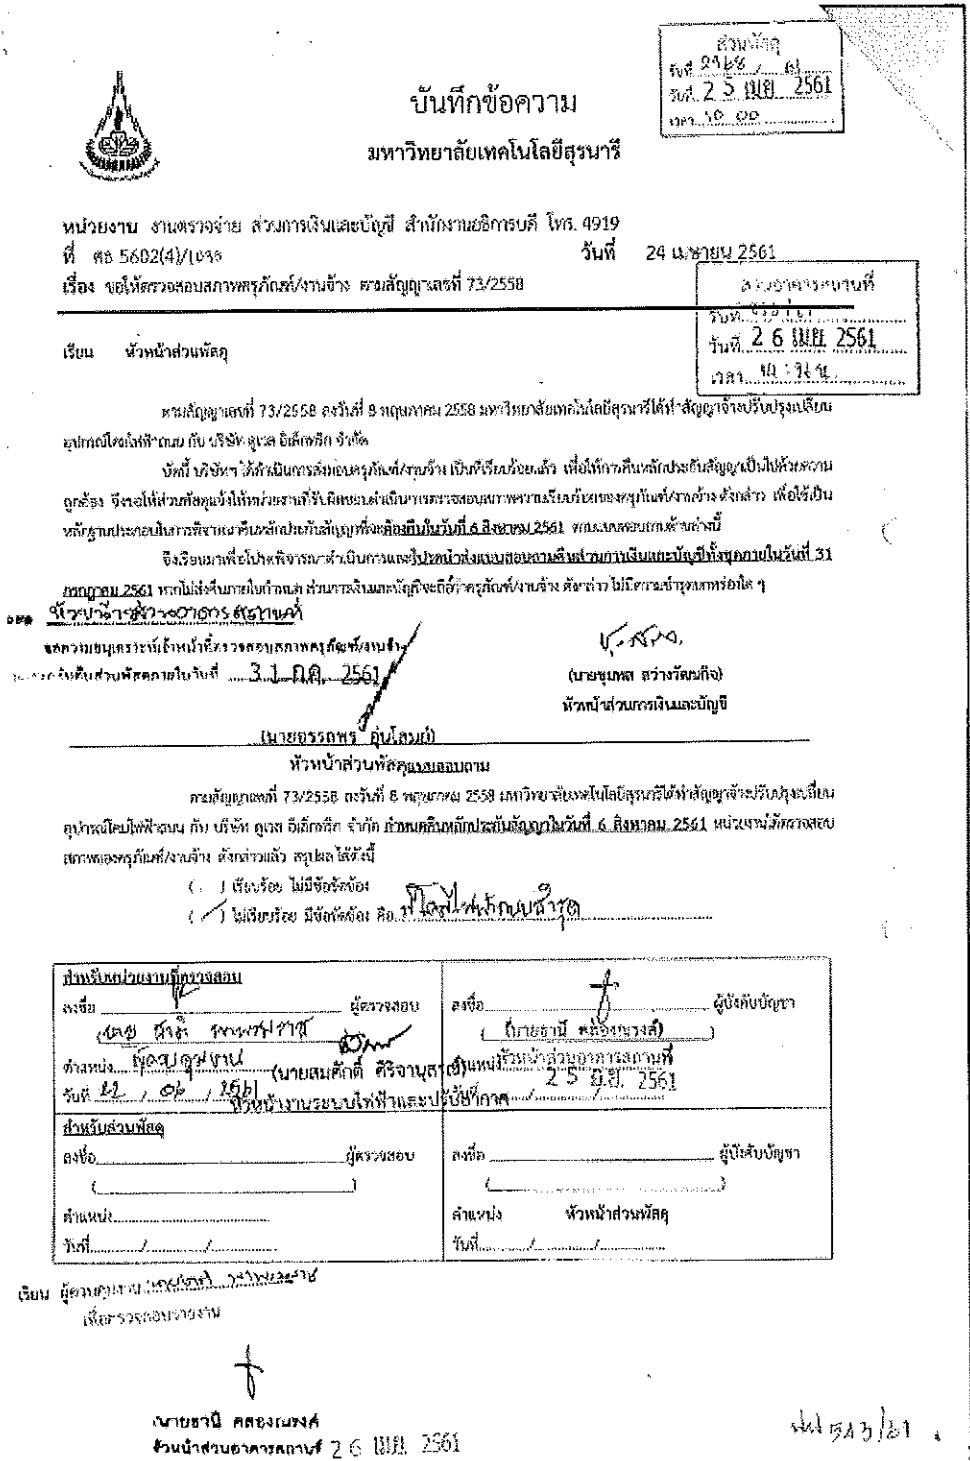 ส่วนพัสดุ
วันที่ 25 เมย 2561
เวลา 10 00
บันทึกข้อความ
มหาวิทยาลัยเทคโนโลยีสุรนารี
หน่วยงาน งานตรวจจ่าย ส่วนการเงินและบัญชี สำนักงานอธิการบดี โทร. 4919
ที่ ศธ 5602(4)/
วันที่ 24 เมษายน 2561
เรื่อง ขอให้ตรวจสอบสภาพครุภัณฑ์/งานจ้าง ตามสัญญาเลขที่ 73/2558
ส่วนอาคารสถานที่
รับที่
วันที่ 26 เมย 2561
เวลา
เรียน หัวหน้าส่วนพัสดุ
ตามสัญญาเลขที่ 73/2558 ลงวันที่ 8 พฤษภาคม 2558 มหาวิทยาลัยเทคโนโลยีสุรนารีได้ทำสัญญาจ้างปรับปรุงเปลี่ยน
อุปกรณ์โคมไฟฟ้าถนน กับ บริษัท ดูเวล อิเล็กทริก จำกัด
บัดนี้ บริษัทฯ ได้ดำเนินการส่งมอบครุภัณฑ์/งานจ้าง เป็นที่เรียบร้อยแล้ว เพื่อให้การคืนหลักประกันสัญญาเป็นไปด้วยความ
ถูกต้อง จึงขอให้ส่วนพัสดุแจ้งให้หน่วยงานที่รับผิดชอบดำเนินการตรวจสอบสภาพความเรียบร้อยของครุภัณฑ์/งานจ้าง ดังกล่าว เพื่อใช้เป็น
หลักฐานประกอบในการพิจารณาคืนหลักประกันสัญญาที่จะต้องคืนในวันที่ 6 สิงหาคม 2561 ตามแบบสอบถามด้านล่างนี้
จึงเรียนมาเพื่อโปรดพิจารณาดำเนินการและโปรดนำส่งแบบสอบถามคืนส่วนการเงินและบัญชีทั้งชุดภายในวันที่ 31
กรกฎาคม 2561 หากไม่ส่งคืนภายในกำหนด ส่วนการเงินและบัญชีจะถือว่าครุภัณฑ์/งานจ้าง ดังกล่าว ไม่มีความชำรุดบกพร่องใด ๆ
หัวหน้าส่วนอาคารสถานที่
ขอความอนุเคราะห์เจ้าหน้าที่ตรวจสอบสภาพครุภัณฑ์/งานจ้าง
คืนส่วนพัสดุภายในวันที่ 31 กค. 2561
(นายชุมพล สว่างวัฒนกิจ)
หัวหน้าส่วนการเงินและบัญชี
(นายอรรถพร อุ่นโสมย์)
หัวหน้าส่วนพัสดุ
แบบสอบถาม
ตามสัญญาเลขที่ 73/2558 ลงวันที่ 8 พฤษภาคม 2558 มหาวิทยาลัยเทคโนโลยีสุรนารีได้ทำสัญญาจ้างปรับปรุงเปลี่ยน
อุปกรณ์โคมไฟฟ้าถนน กับ บริษัท ดูเวล อิเล็กทริก จำกัด กำหนดคืนหลักประกันสัญญาในวันที่ 6 สิงหาคม 2561 หน่วยงานได้ตรวจสอบ
สภาพของครุภัณฑ์/งานจ้าง ดังกล่าวแล้ว สรุปผลได้ดังนี้
( ) เรียบร้อย ไม่มีข้อขัดข้อง
( / ) ไม่เรียบร้อย มีข้อขัดข้อง คือ มีโคมไฟฟ้าถนนชำรุด
สำหรับหน่วยงานที่ตรวจสอบ
ลงชื่อ ผู้ตรวจสอบ
ตำแหน่ง ผู้ควบคุมงาน
วันที่ 22 / 06 / 2561
(นายสมศักดิ์ ศิริจานุสรณ์)
หัวหน้างานระบบไฟฟ้าและปรับอากาศ
ลงชื่อ ผู้บังคับบัญชา
(นายธานี คล่องณรงค์)
ตำแหน่ง หัวหน้าส่วนอาคารสถานที่
วันที่ 25 มิ.ย. 2561
สำหรับส่วนพัสดุ
ลงชื่อ ผู้ตรวจสอบ
( )
ตำแหน่ง
วันที่ / /
ลงชื่อ ผู้บังคับบัญชา
( )
ตำแหน่ง หัวหน้าส่วนพัสดุ
วันที่ / /
เรียน ผู้ควบคุมงาน
เพื่อตรวจสอบรายงาน
(นายธานี คล่องณรงค์
หัวหน้าส่วนอาคารสถานที่ 26 เมย. 2561
513/61